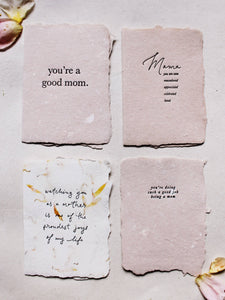 you're a
good mom.
Mama
you are seen
appreciated
celebrated
loved
watching you
as a mother
is one of the
proudest joys
of my life
you're doing
such a good job
being a mom